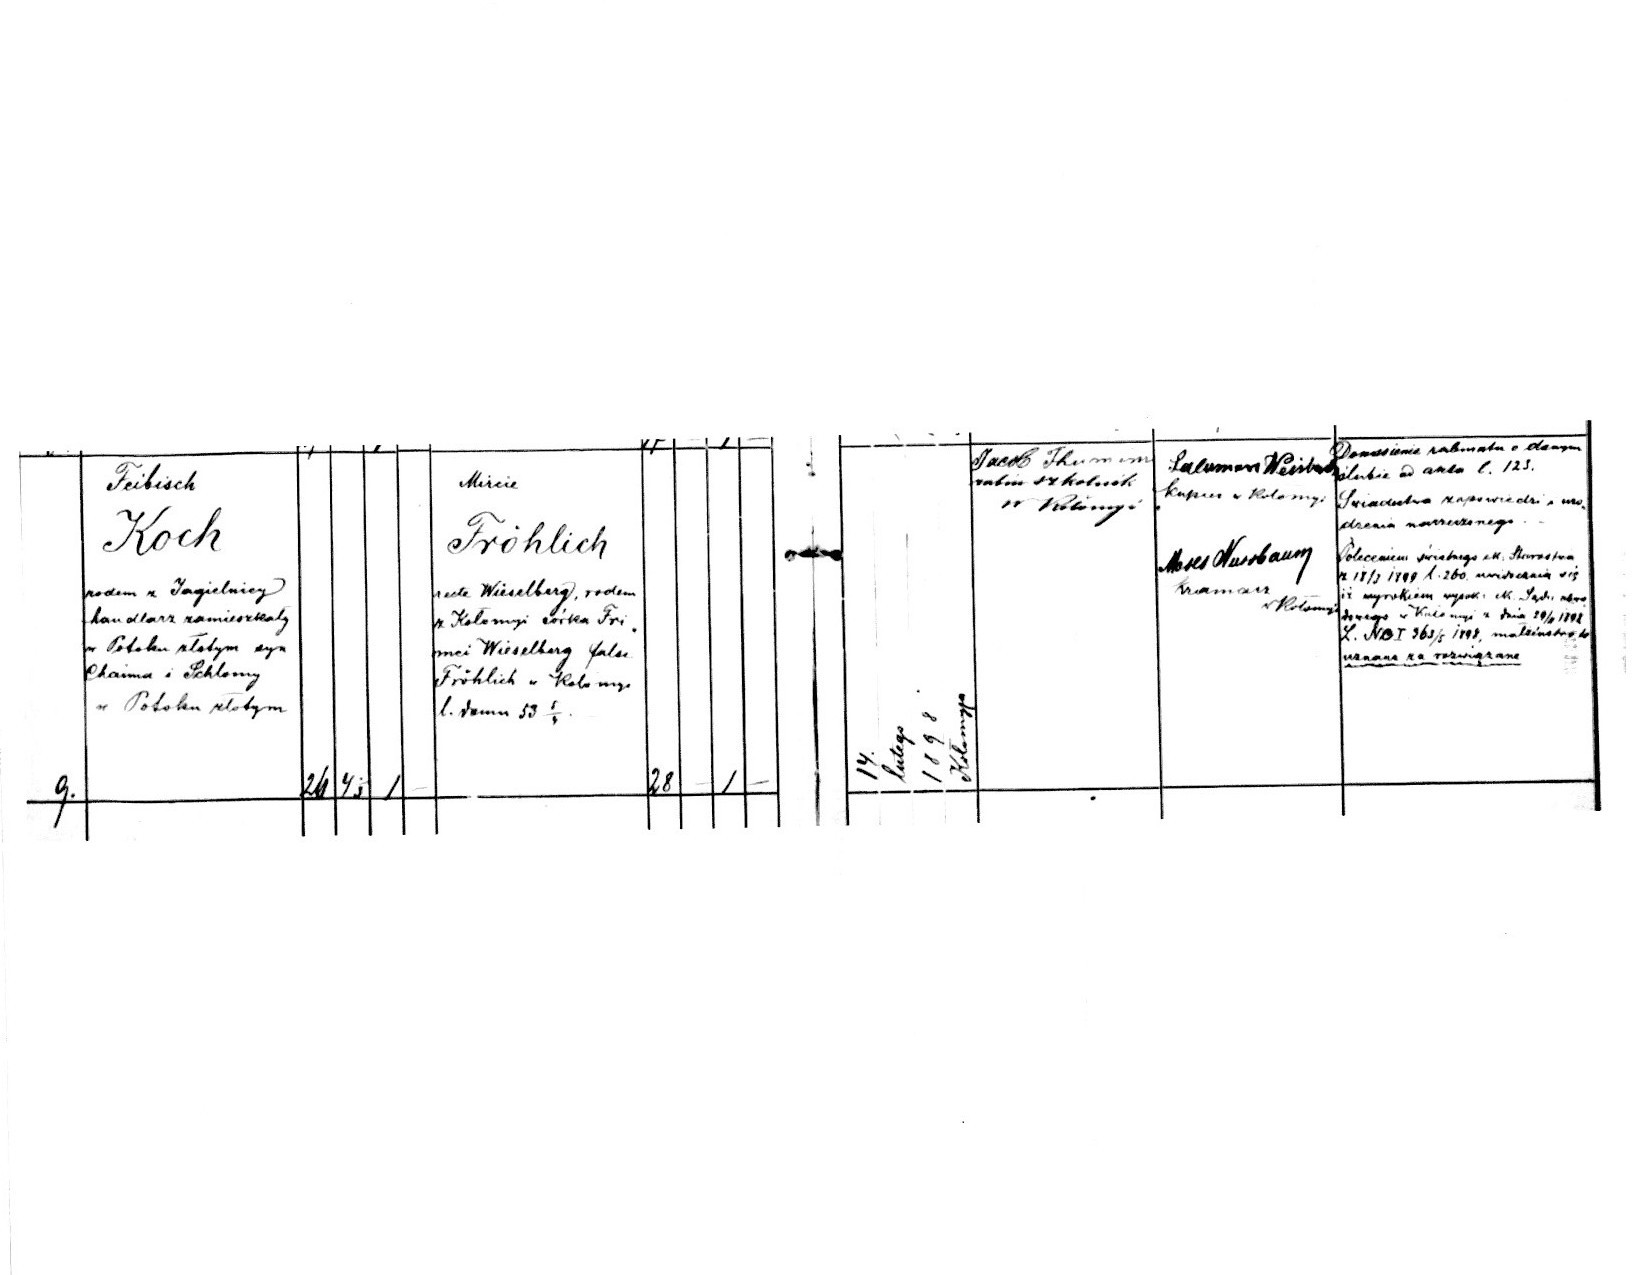 9.
Feibisch
Koch
rodem z Jagielnicy
handlarz zamieszkały
w Potoku złotym syn
Chaima i Schlomy
w Potoku złotym
24 4/3 1 —
Mircie
Fröhlich
recte Wieselberg, rodem
z Kołomyi córka Fri
mci Wieselberg false
Fröhlich w Kołomyi
l. domu 53
28 — 1 —
14.
lutego
1898
Kołomyja
Jacob Thumim
rabin szkolnik
w Kołomyi
Salamon
kupiec w Kołomyi
Moses Nussbaum
kramarz
w Kołomyi
Doniesienie rabinatu o danym
ślubie ad akta l. 123.
Świadectwa zapowiedzi i uro-
dzenia narzeczonego.
Poleceniem świetnego ck. Starostwa
z 18/3 1899 l. 260. uwidacznia się
iż wyrokiem wysok. ck. Sądu obwo
dowego w Kołomyi z dnia 1898
L. 363/5 1898, małżeństwo to
uznane za rozwiązane